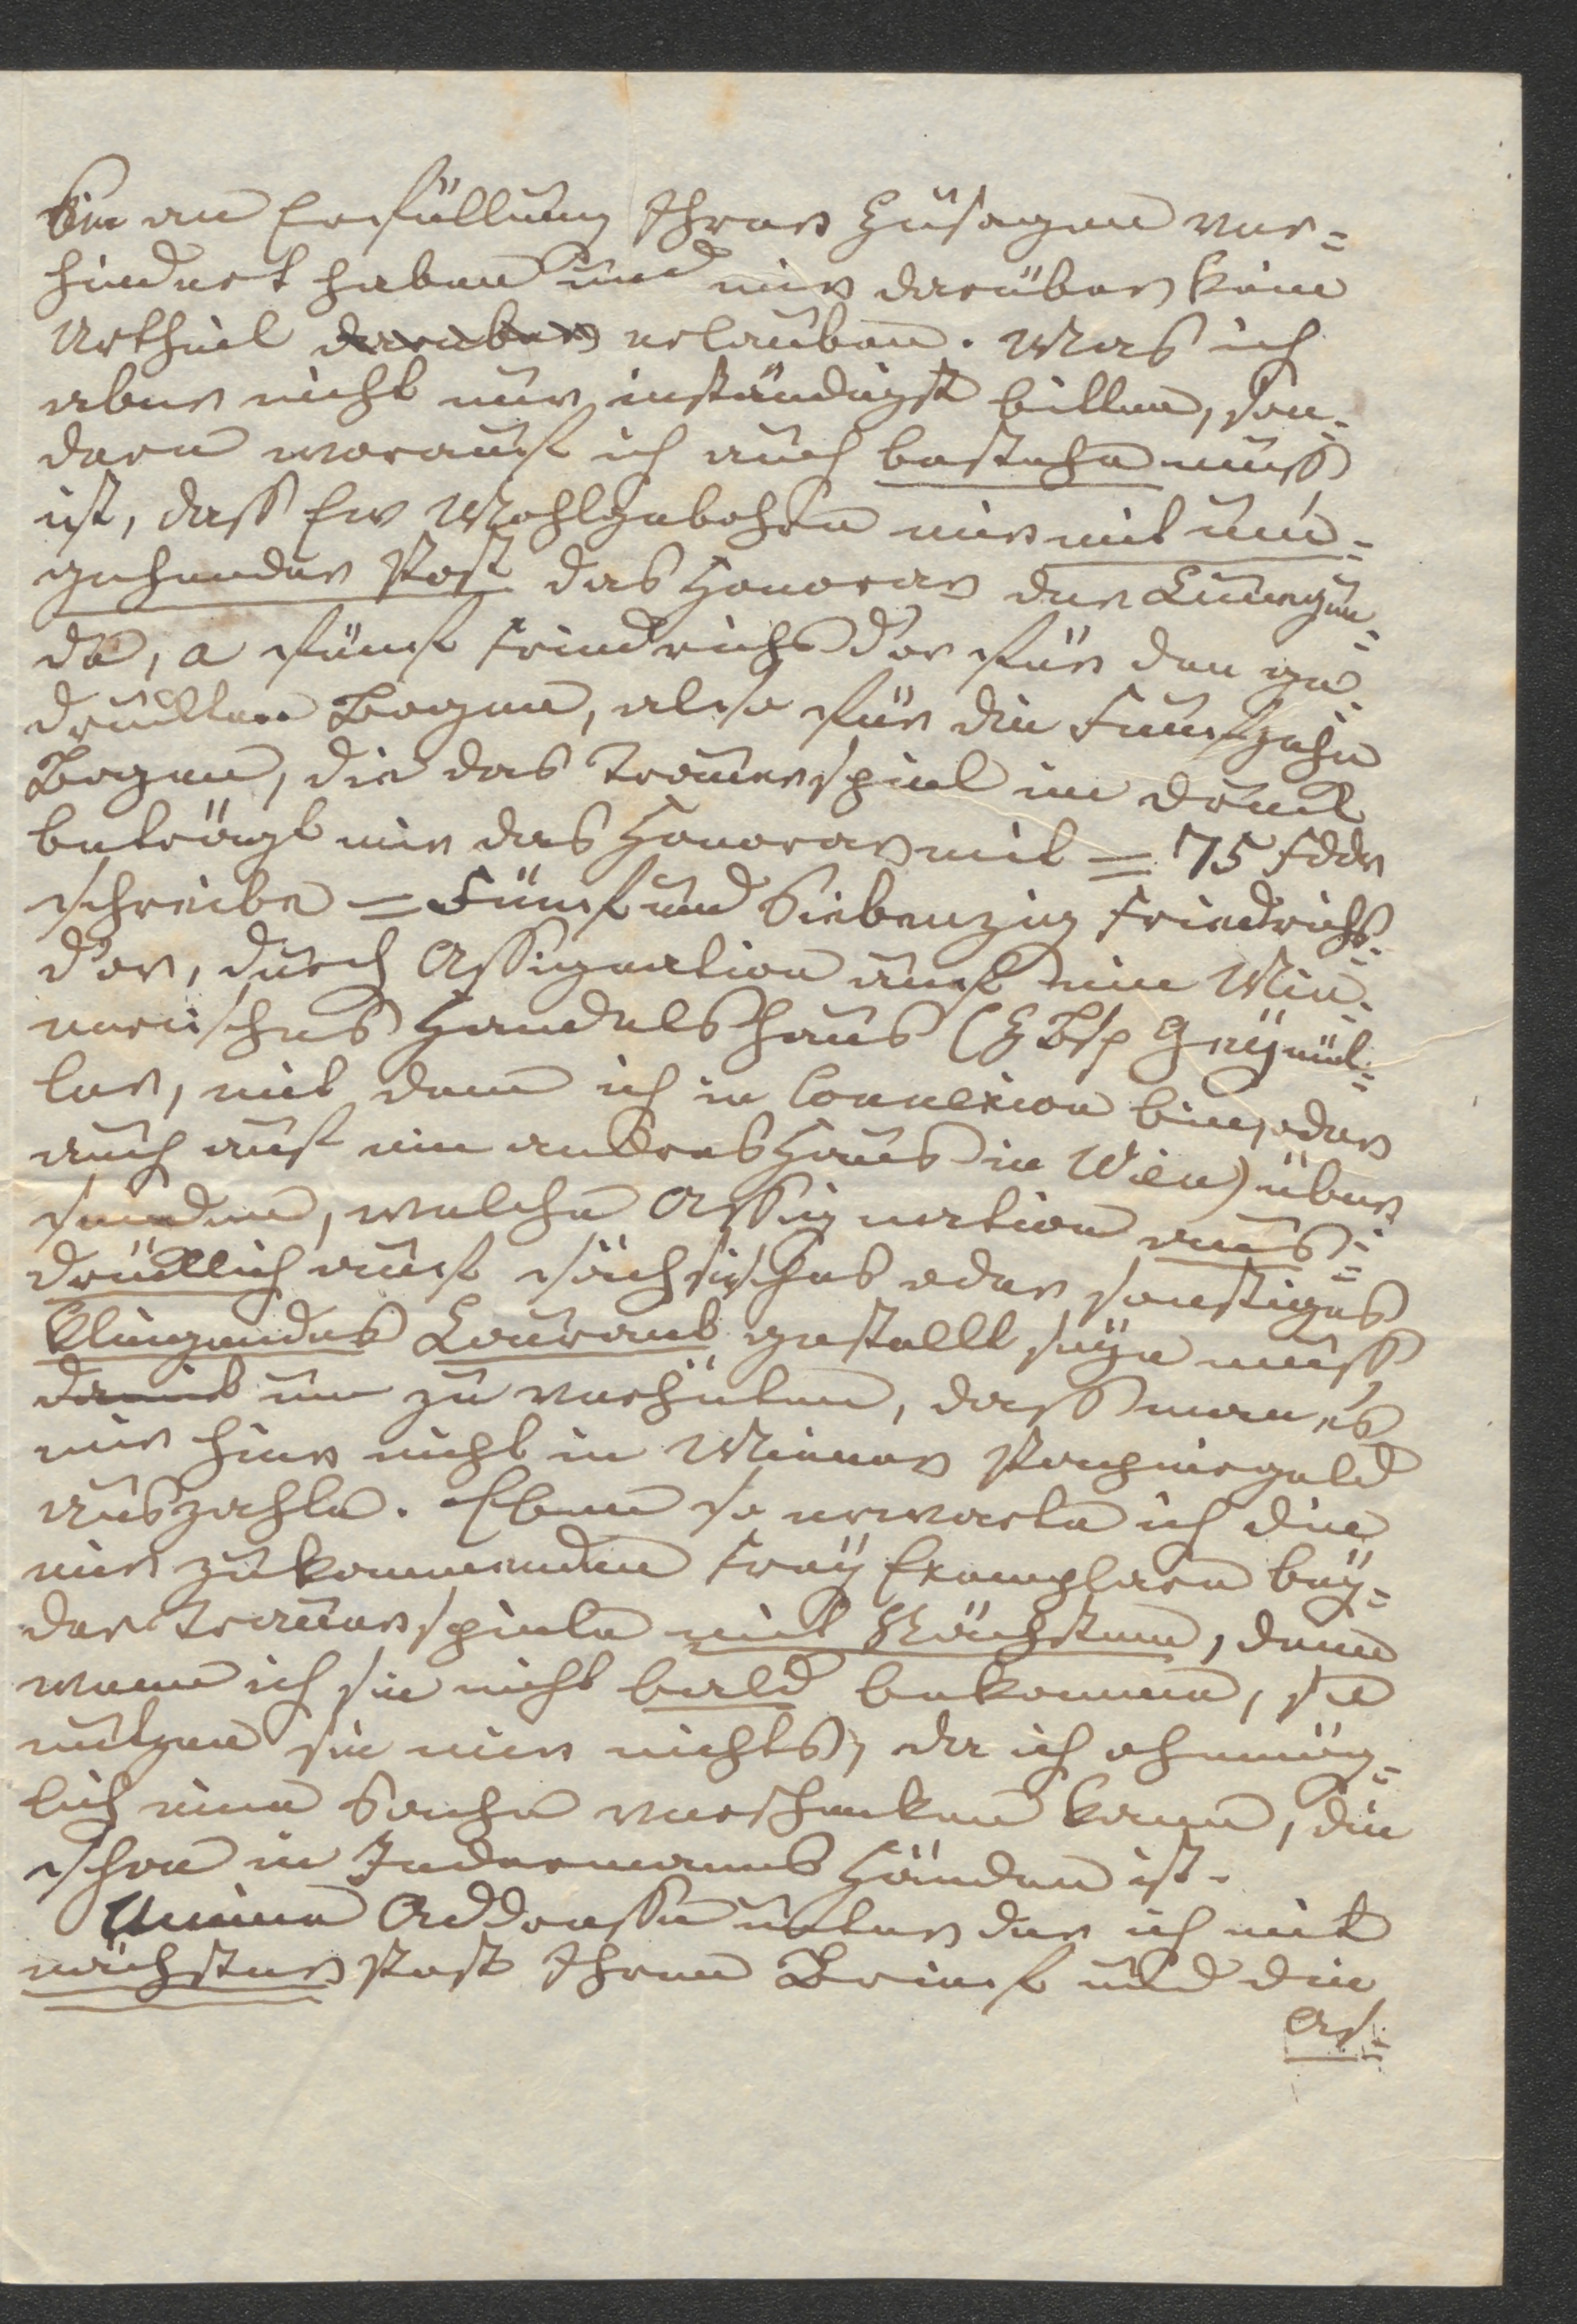 Sie an Erfüllung Ihrer Zusagen ver=
hindert haben und mir darüber kein
Urtheil darüber erlauben. Was ich
aber nicht nur inständigst bitten, son=
dern worauf ich auch bestehen muß
ist, daß Ew Wohlgebohrn mir mit um=
gehender Post das Honorar der Cunegun=
da, a fünf Friedrichs d'or für den ge=
druckten Bogen, also für die Fünfzehn
Bogen, die das Trauerspiel im Druck
beträgt mir das Honorar mit = 75 Fddr
schreibe = Fünf und Siebenzig Friedrichs=
d'or, durch Assignation auf ein Wie=
nerisches Handelshaus (z Bsp Geymül=
ler, mit dem ich in Connexion bin, oder
auch auf ein andres Haus in Wien) über
senden, welche Assignation aus=
drücklich auf sächsisches oder sonstiges
klingendes Courant gestellt seyn muß
damit um zu verhüten, daß man es
mir hier nicht in Wiener Papiergeld
auszahle. Eben so erwarte ich die
mir zukommenden Frey Exemplare bey=
der Trauerspiele mit Nächstem, denn
wenn ich sie nicht bald bekomme, so
nutzen sie mir nichts, da ich ohnmög=
lich eine Sache verschenken kann, die
schon in Jedermanns Händen ist.
Meine Addresse unter der ich mit
nächster Post Ihren Brief und die
As=